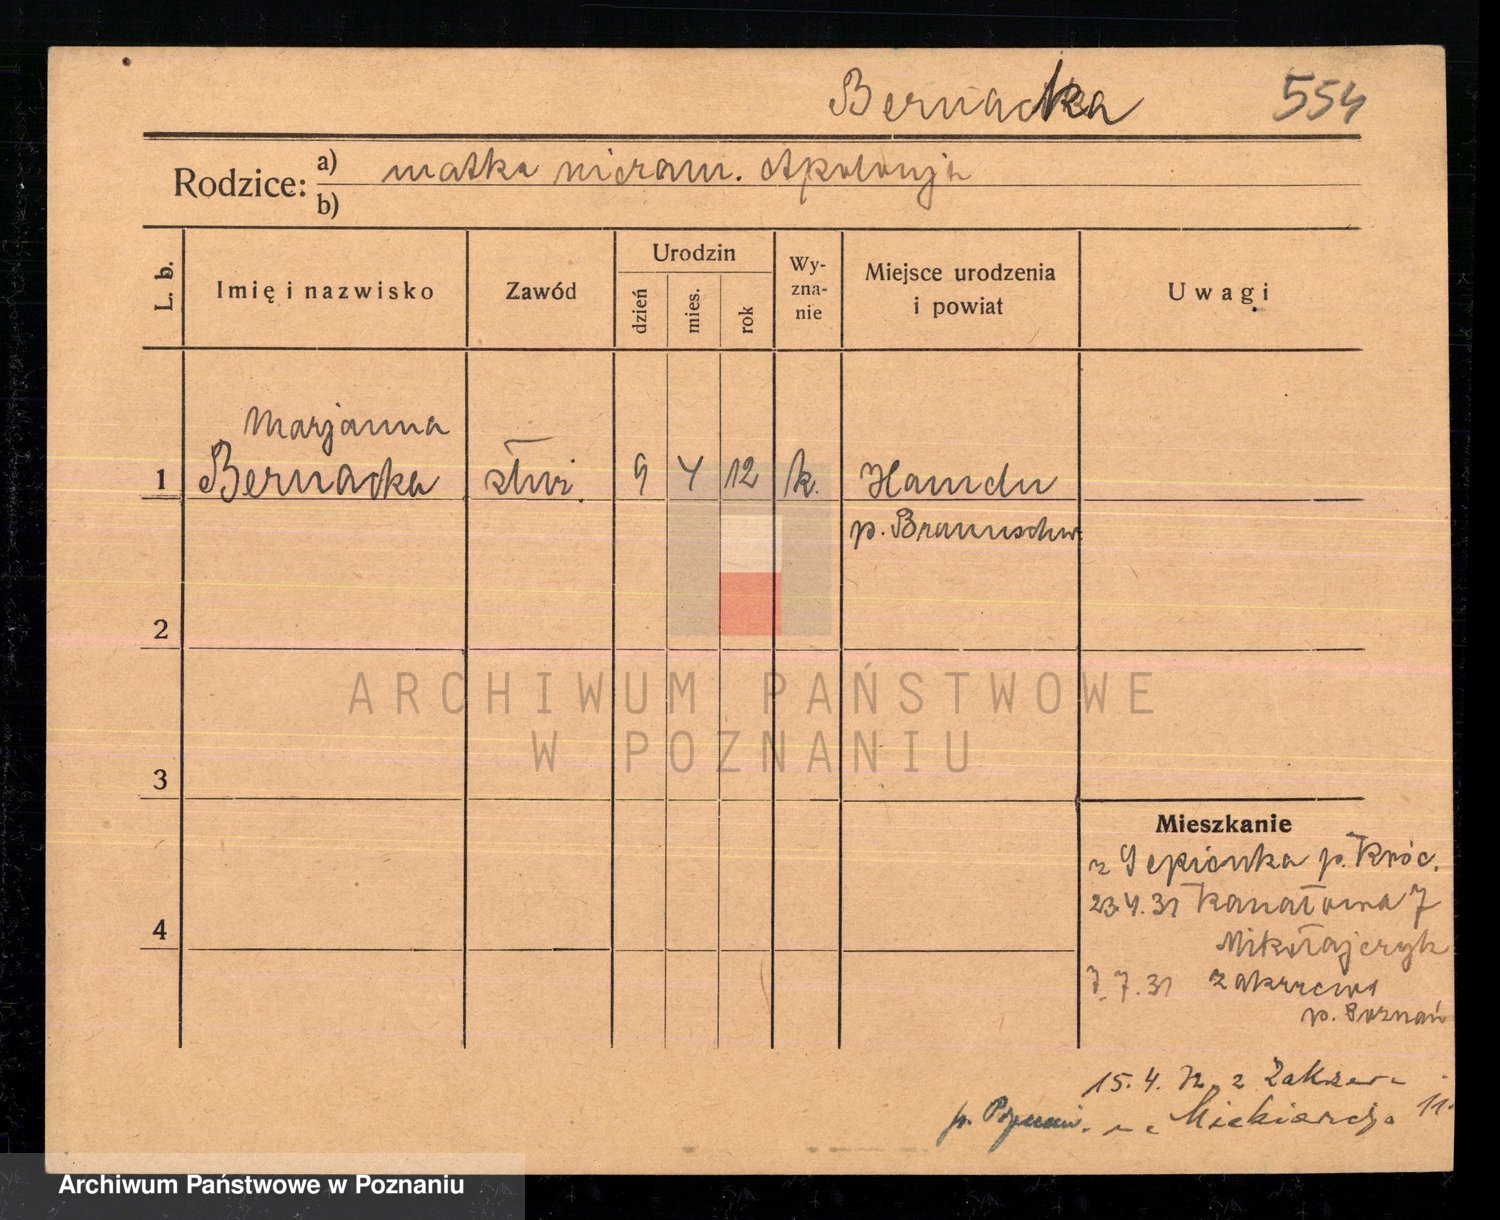 Bernacka 554
Rodzice: a) matka niezam. Apolonja
b)
L. b. Imię i nazwisko Zawód Urodzin dzień mies. rok Wy-zna-nie Miejsce urodzenia i powiat Uwagi
Marjanna
1 Bernacka służ. 9 4 12 k. Hameln
p. Braunschw.
2
ARCHIWUM PAŃSTWOWE
W POZNANIU
3
Mieszkanie
z p. Króc.
23.4.31 Kanałowa 7
4
Mikołajczyk
7.7.31 Zakrzewo
p. Poznań
15.4. z Zakrzewa
p. Poznań. Mickiewicza 11.
Archiwum Państwowe w Poznaniu